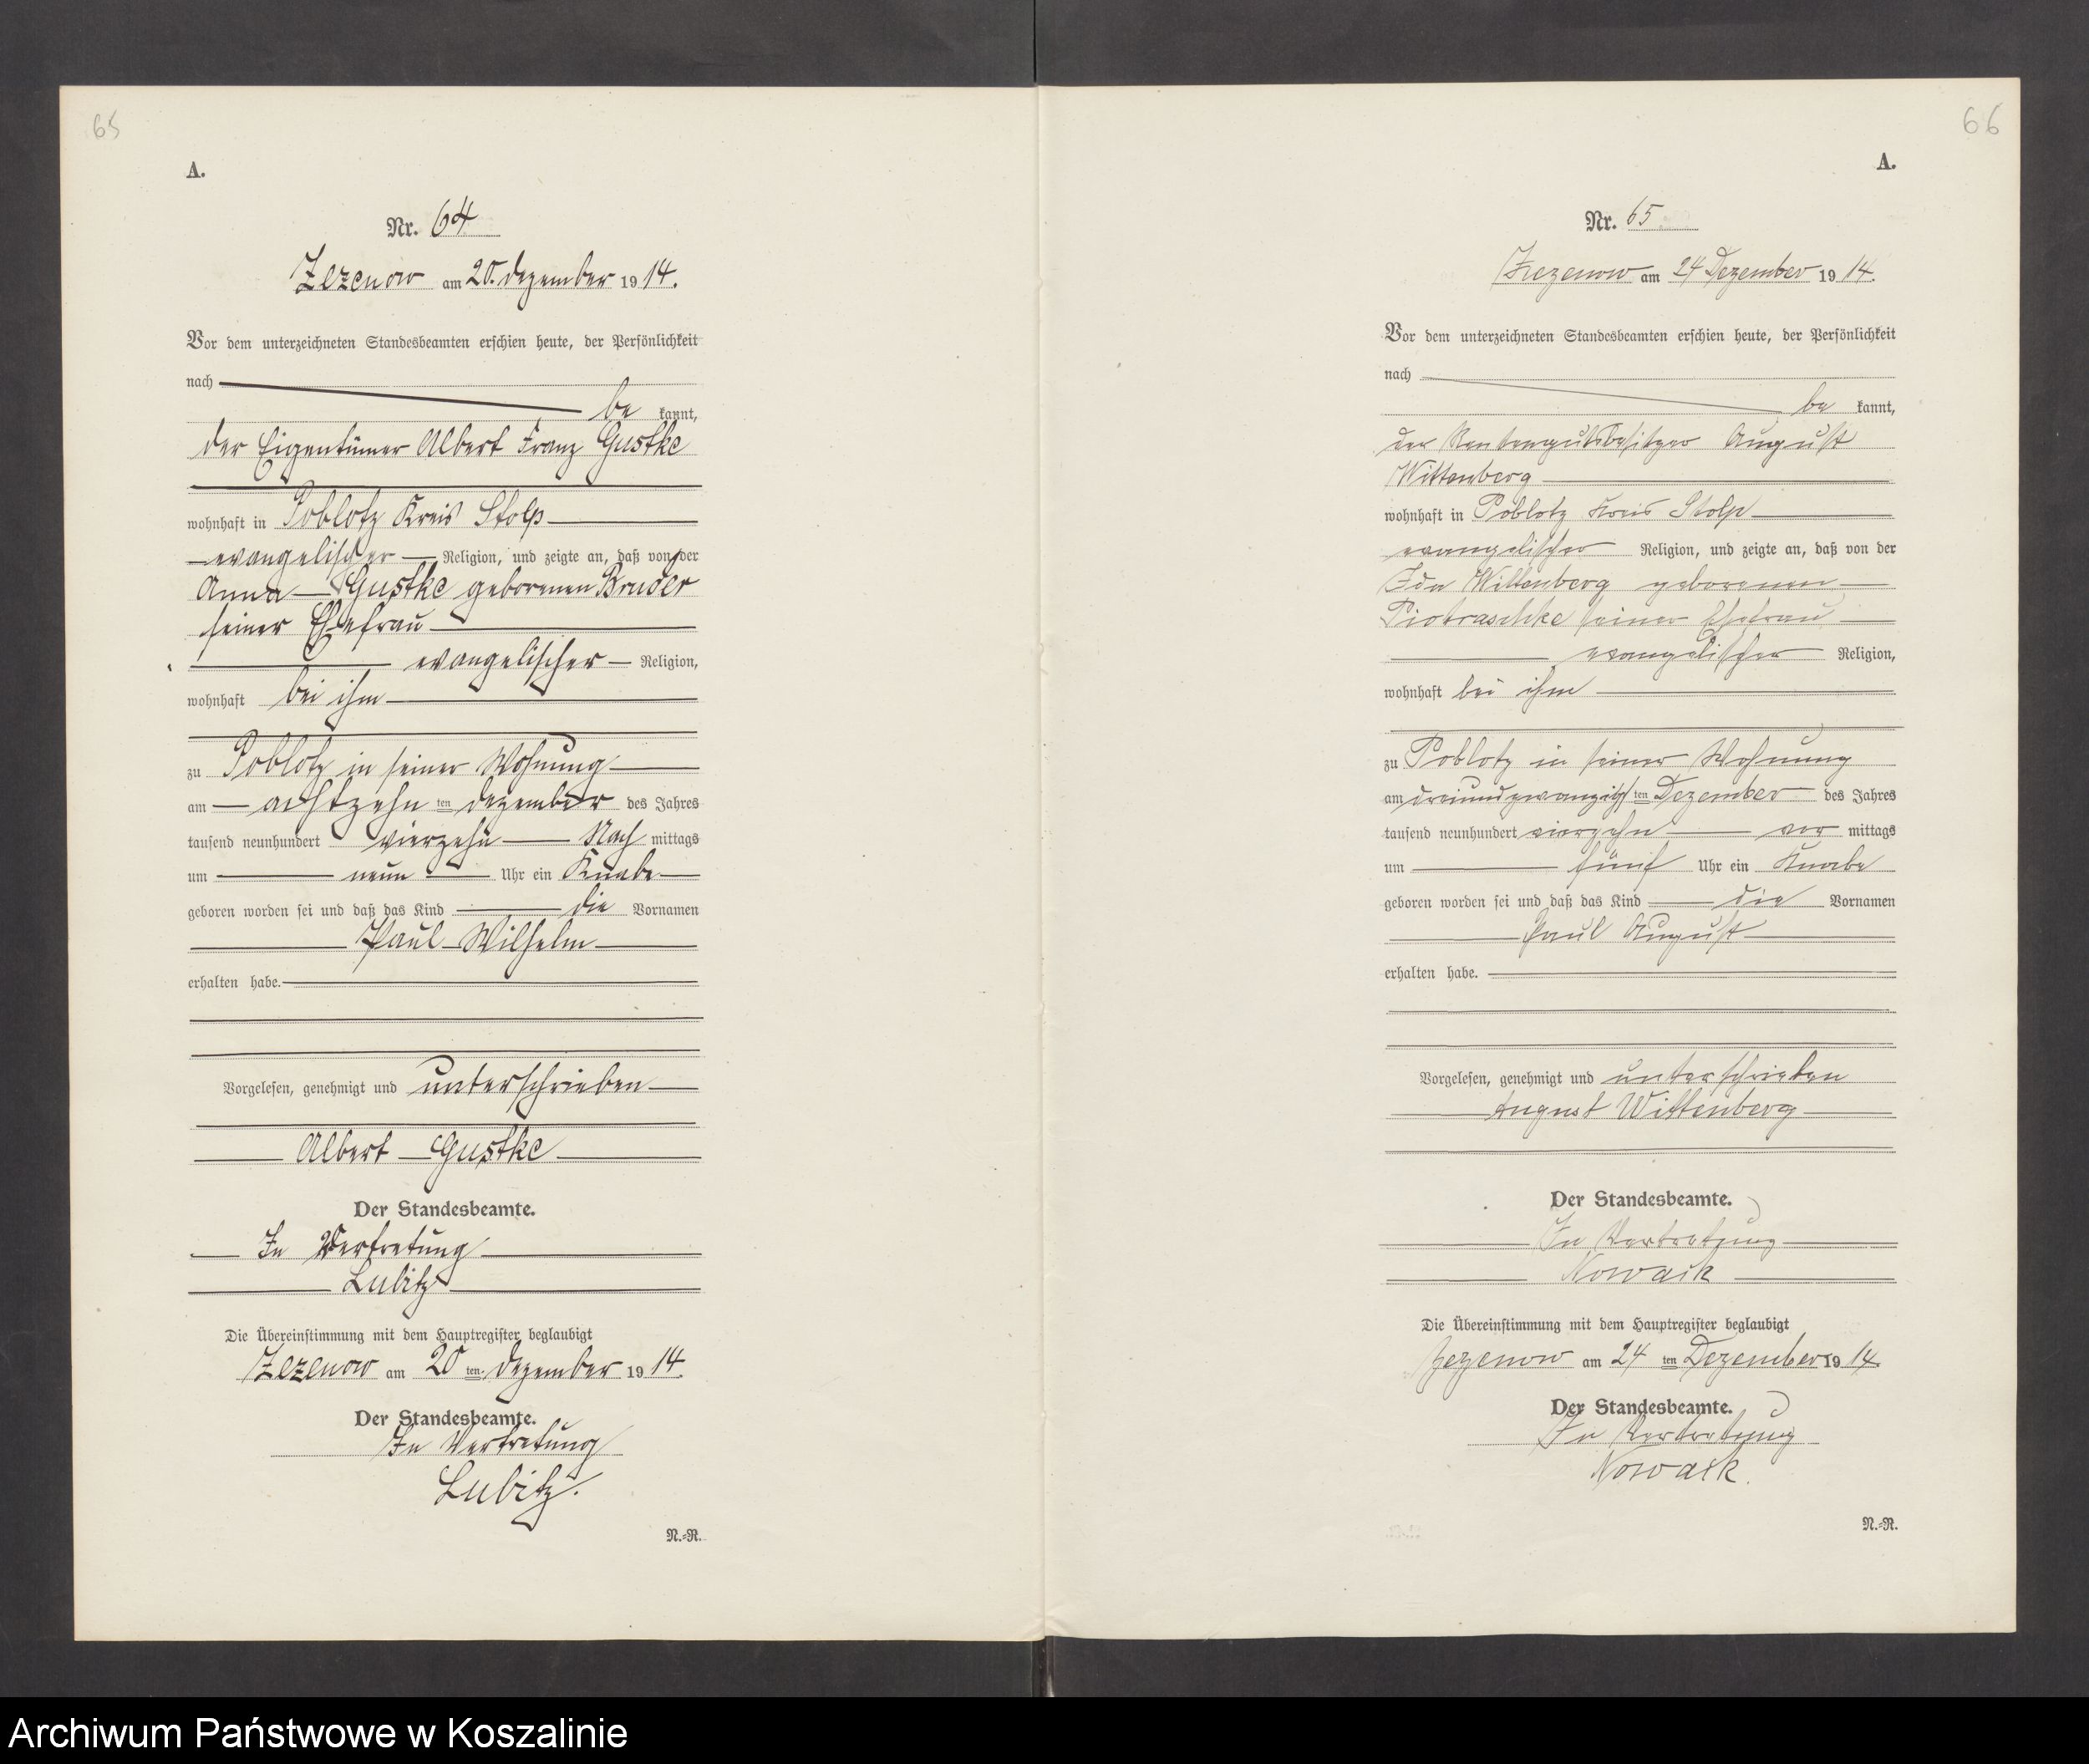 65
A.
Nr. 64
Zezenow am 20. Dezember 1914.
Vor dem unterzeichneten Standesbeamten erschien heute, der Persönlichkeit
nach
be kannt,
der Eigentümer Albert Franz Gustke
wohnhaft in Poblotz Kreis Stolp
evangelischer Religion, und zeigte an, daß von der
Anna Gustke geborenen Bruder
seiner Ehefrau
evangelischer Religion,
wohnhaft bei ihm
zu Poblotz in seiner Wohnung
am achtzehn ten Dezember des Jahres
tausend neunhundert vierzehn Nach mittags
um neun Uhr ein Knabe
geboren worden sei und daß das Kind die Vornamen
Paul Wilhelm
erhalten habe.
Vorgelesen, genehmigt und unterschrieben
Albert Gustke
Der Standesbeamte.
In Vertretung
Lubitz
Die Übereinstimmung mit dem Hauptregister beglaubigt
Zezenow am 20 ten Dezember 1914.
Der Standesbeamte.
In Vertretung
Lubitz.
N.=R.
66
A.
Nr. 65
Zezenow am 24 Dezember 1914.
Vor dem unterzeichneten Standesbeamten erschien heute, der Persönlichkeit
nach
be kannt,
der Rentengutsbesitzer August
Wittenberg
wohnhaft in Poblotz Kreis Stolp
evangelischer Religion, und zeigte an, daß von der
Ida Wittenberg geborenen
Piotraschke seiner Ehefrau
evangelischer Religion,
wohnhaft bei ihm
zu Poblotz in seiner Wohnung
am dreiundzwanzigs ten Dezember des Jahres
tausend neunhundert vierzehn vor mittags
um fünf Uhr ein Knabe
geboren worden sei und daß das Kind die Vornamen
Paul August
erhalten habe.
Vorgelesen, genehmigt und unterschrieben
August Wittenberg
Der Standesbeamte.
In Vertretung
Nowack
Die Übereinstimmung mit dem Hauptregister beglaubigt
Zezenow am 24 ten Dezember 1914.
Der Standesbeamte.
In Vertretung
Nowack.
N.=R.
Archiwum Państwowe w Koszalinie